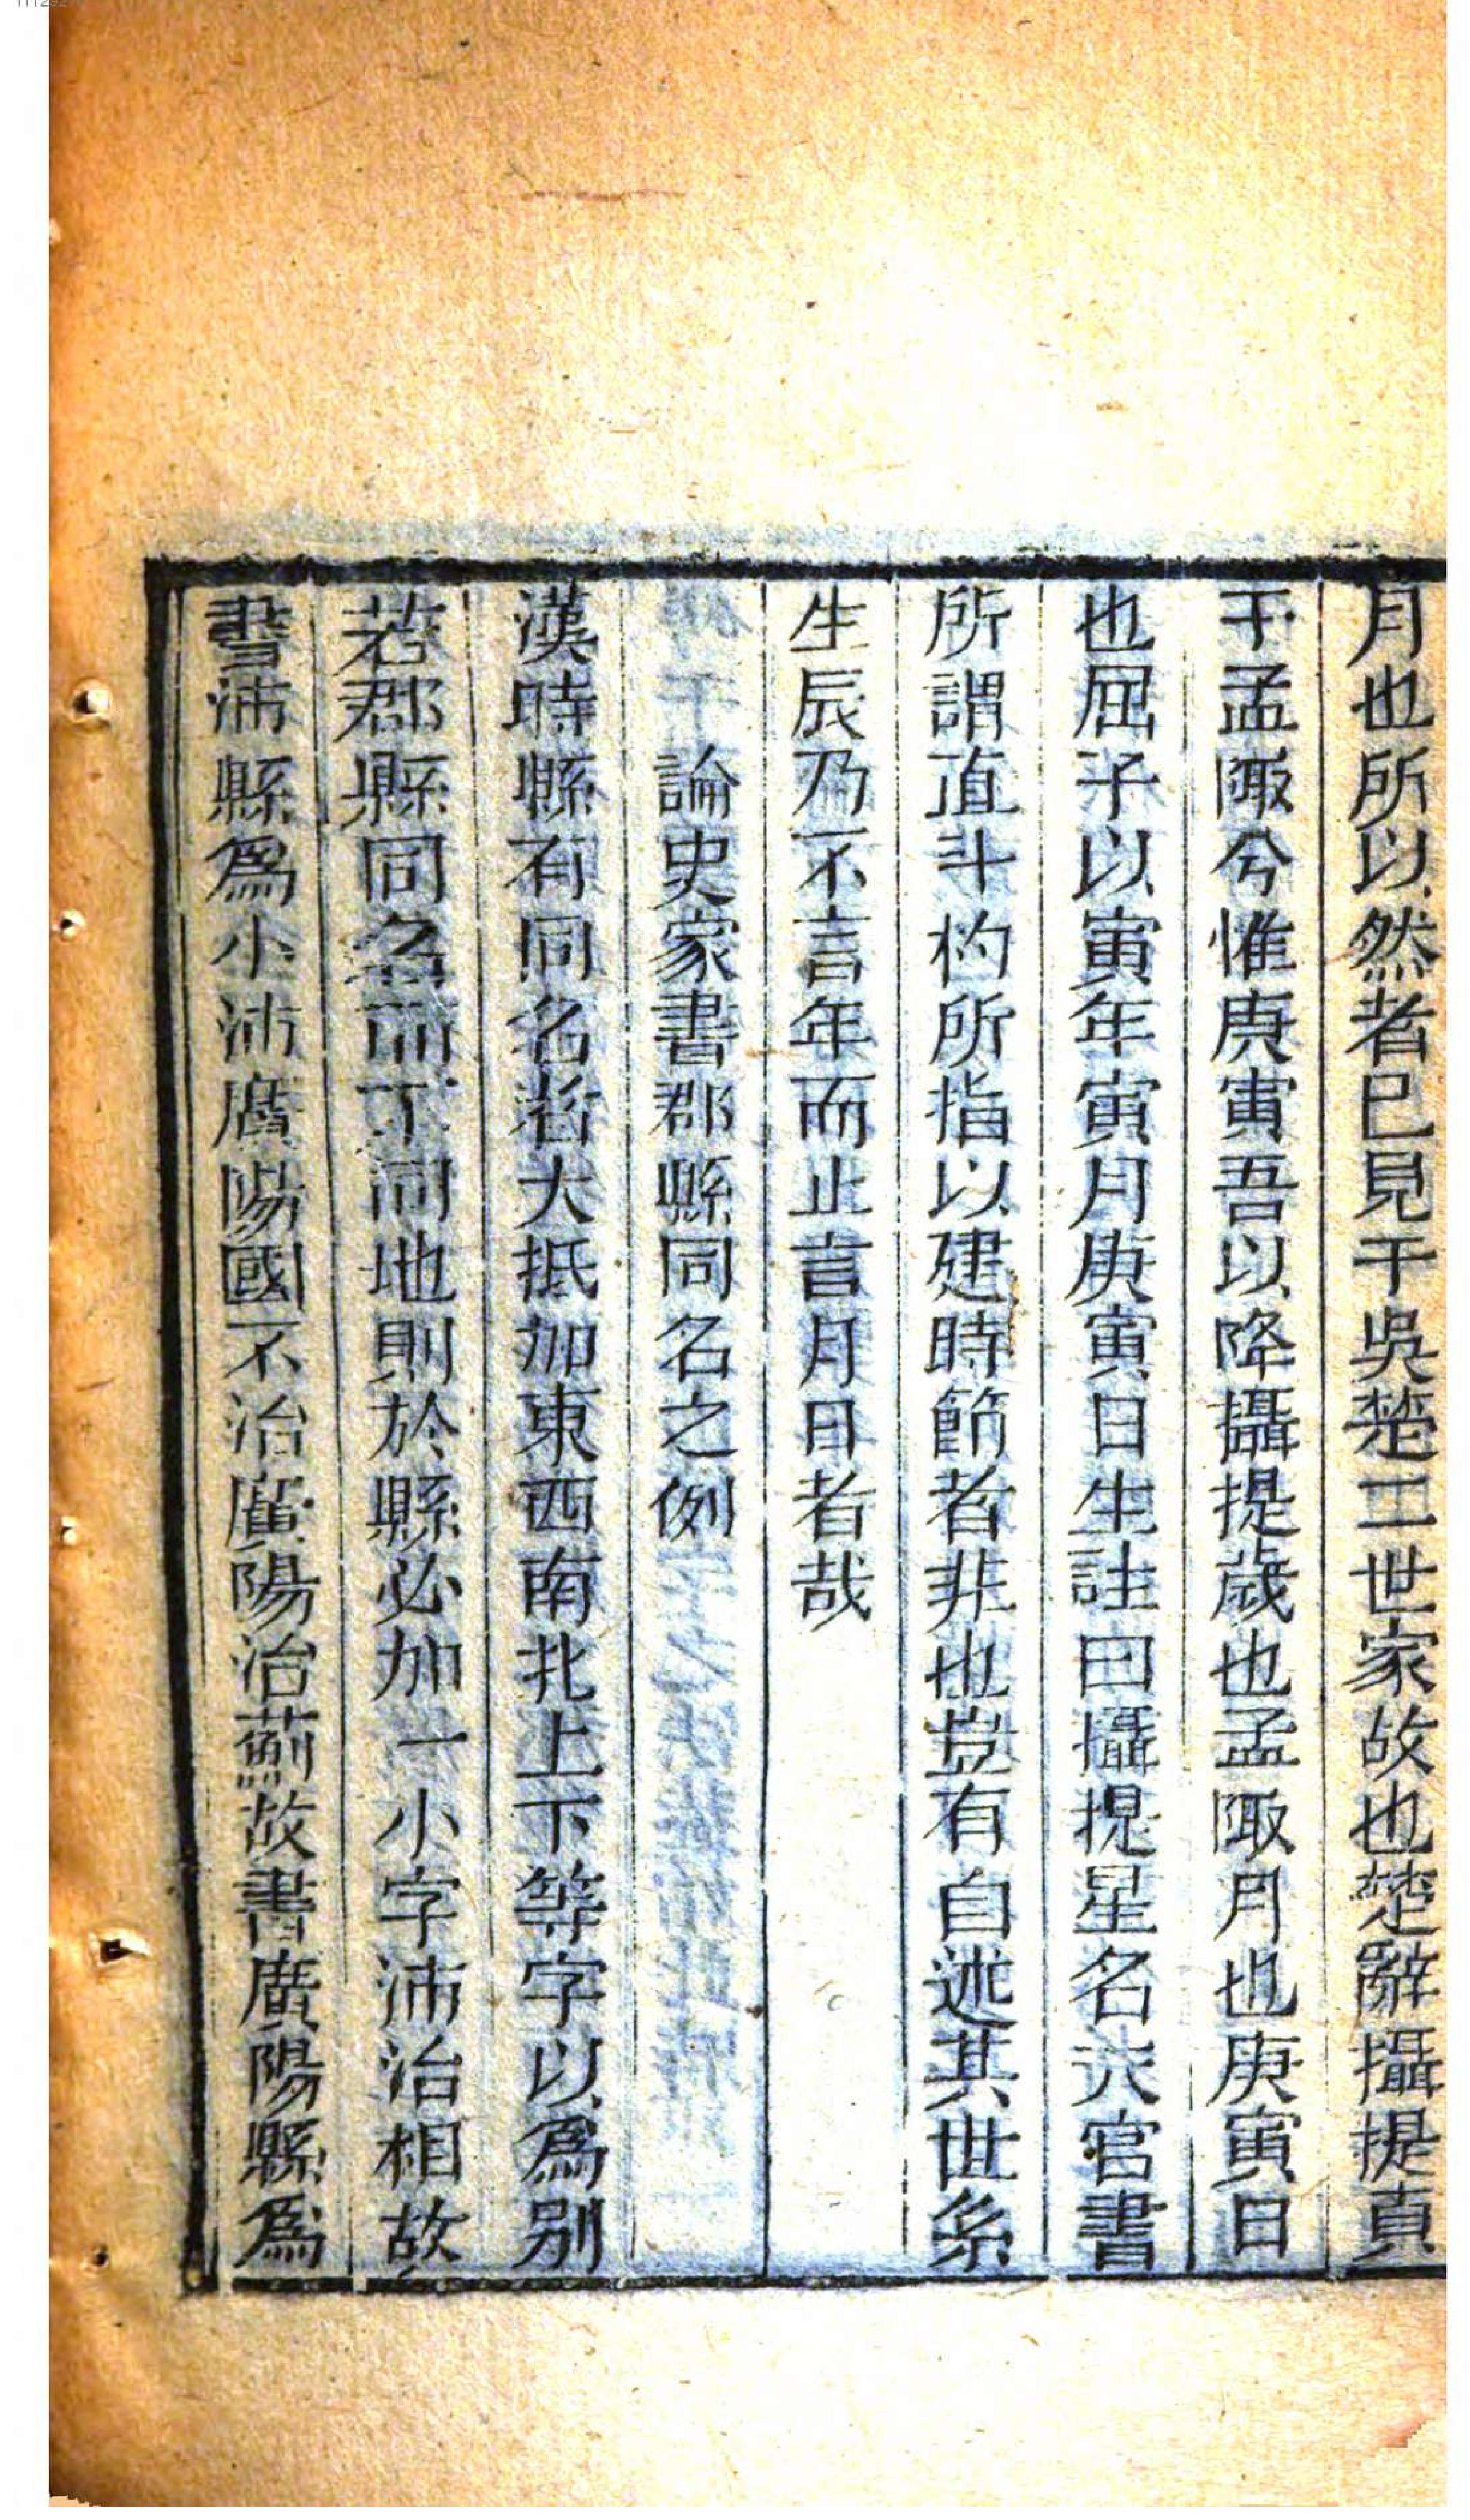 月也所以然者已見于吳楚二世家故也楚辭攝提貞
于孟陬兮惟庚寅吾以降攝提歲也孟陬月也庚寅日
也屈子以寅年寅月庚寅日生註曰攝提星名天官書
所謂直斗杓所指以建時節者非也豈有自述其世系
生辰乃不言年而止言月日者哉
論史家書郡縣同名之例
漢時縣有同名者大抵加東西南北上下等字以爲别
若郡縣同名而不同地則於縣必加一小字沛治相故
書沛縣爲小沛廣陽國不治廣陽治薊故書廣陽縣爲